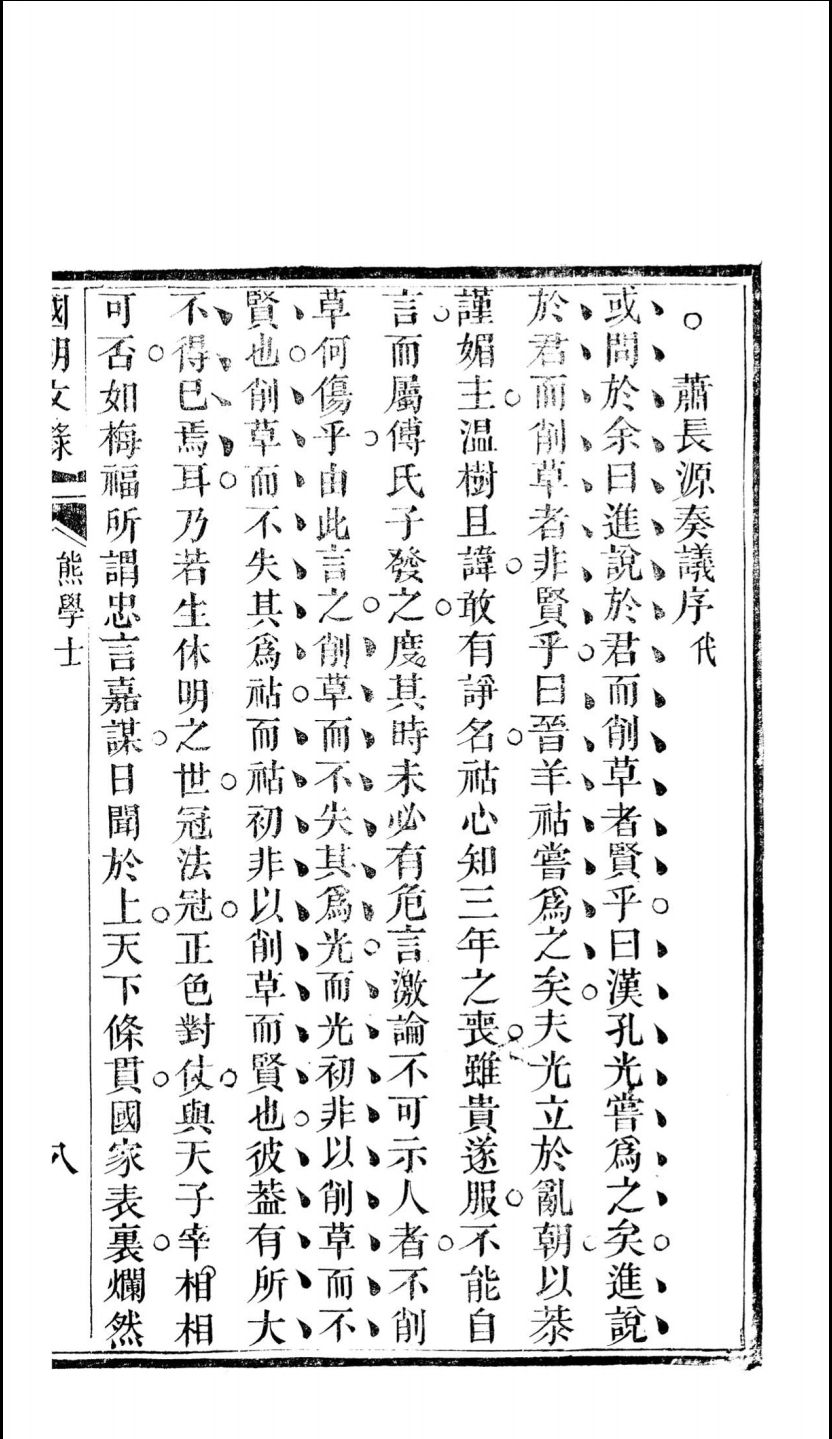 蕭長源奏議序代
或問於余曰進說於君而削草者賢乎曰漢孔光嘗爲之矣進說
於君而削草者非賢乎曰晉羊祜嘗爲之矣夫光立於亂朝以恭
謹媚主温樹且諱敢有諍名祜心知三年之喪雖貴遂服不能自
言而屬傅氏子發之度其時未必有危言激論不可示人者不削
草何傷乎由此言之削草而不失其爲光而光初非以削草而不
賢也削草而不失其爲祜而祜初非以削草而賢也彼葢有所大
不得已焉耳乃若生休明之世冠法冠正色對仗與天子宰相相
可否如梅福所謂忠言嘉謀日聞於上天下條貫國家表裏爛然
國朝文錄
熊學士
八